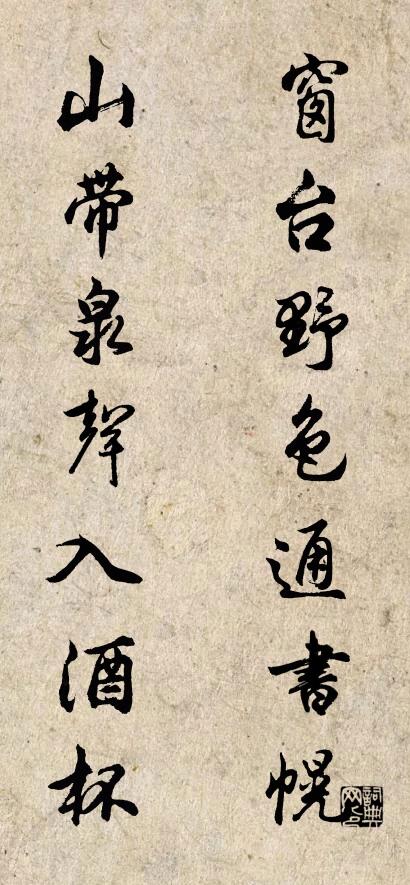 窗台野色通書幌
山帶泉聲入酒杯
詞典网